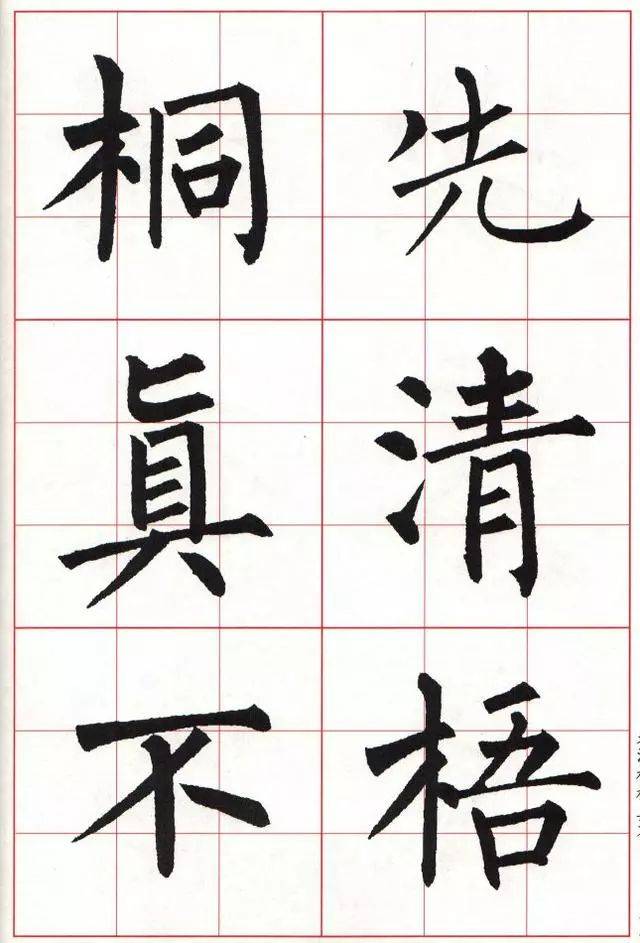 先清梧
桐真不